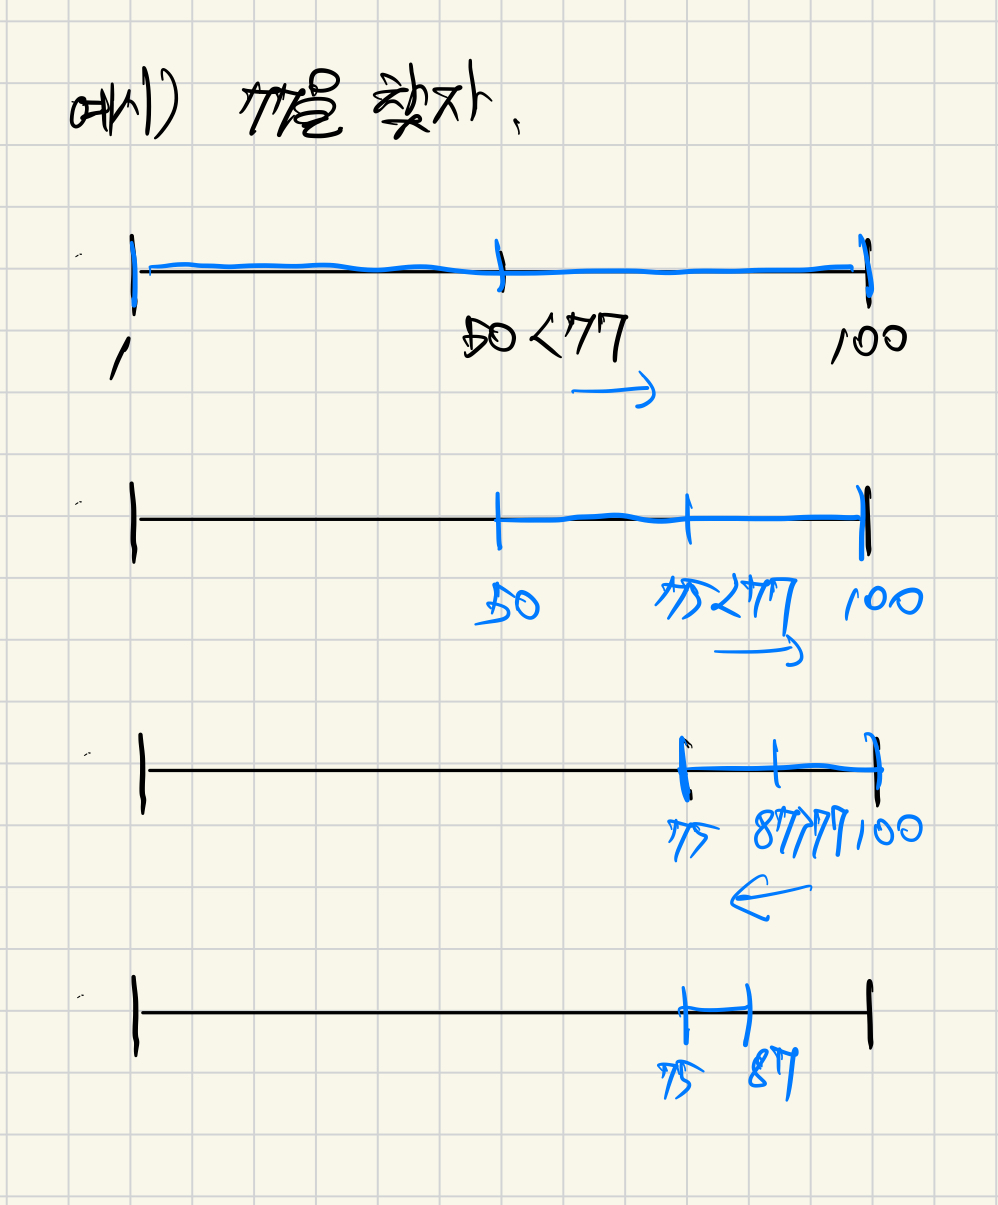 예시) 77을 찾자.
1 50<77 100
50 75<77 100
75 87>77 100
75 87